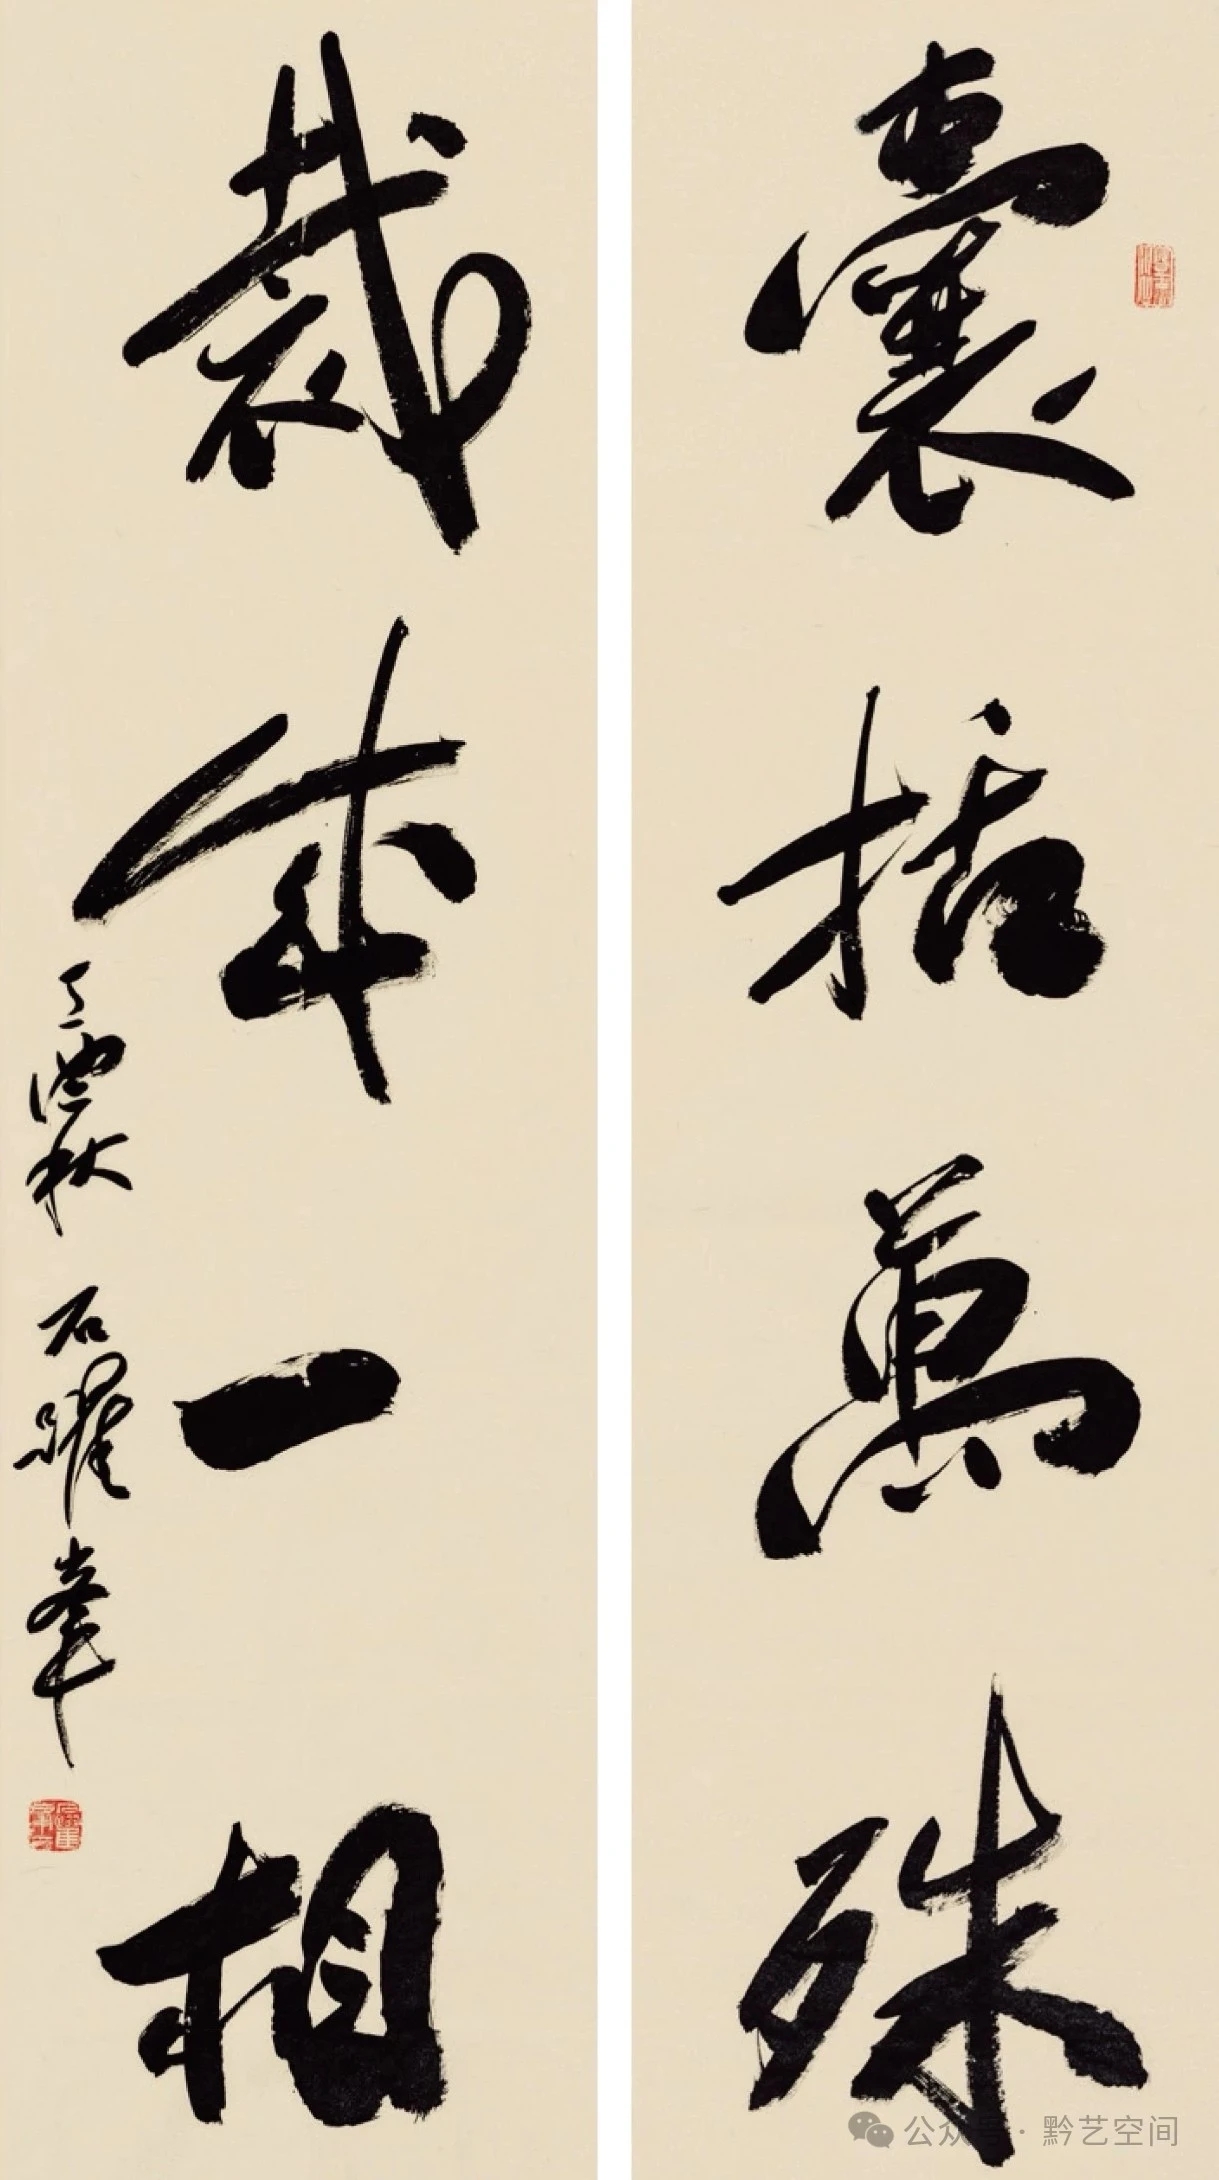 囊括萬殊
裁成一相
丁酉秋 石躍峯
公众号 · 黔艺空间